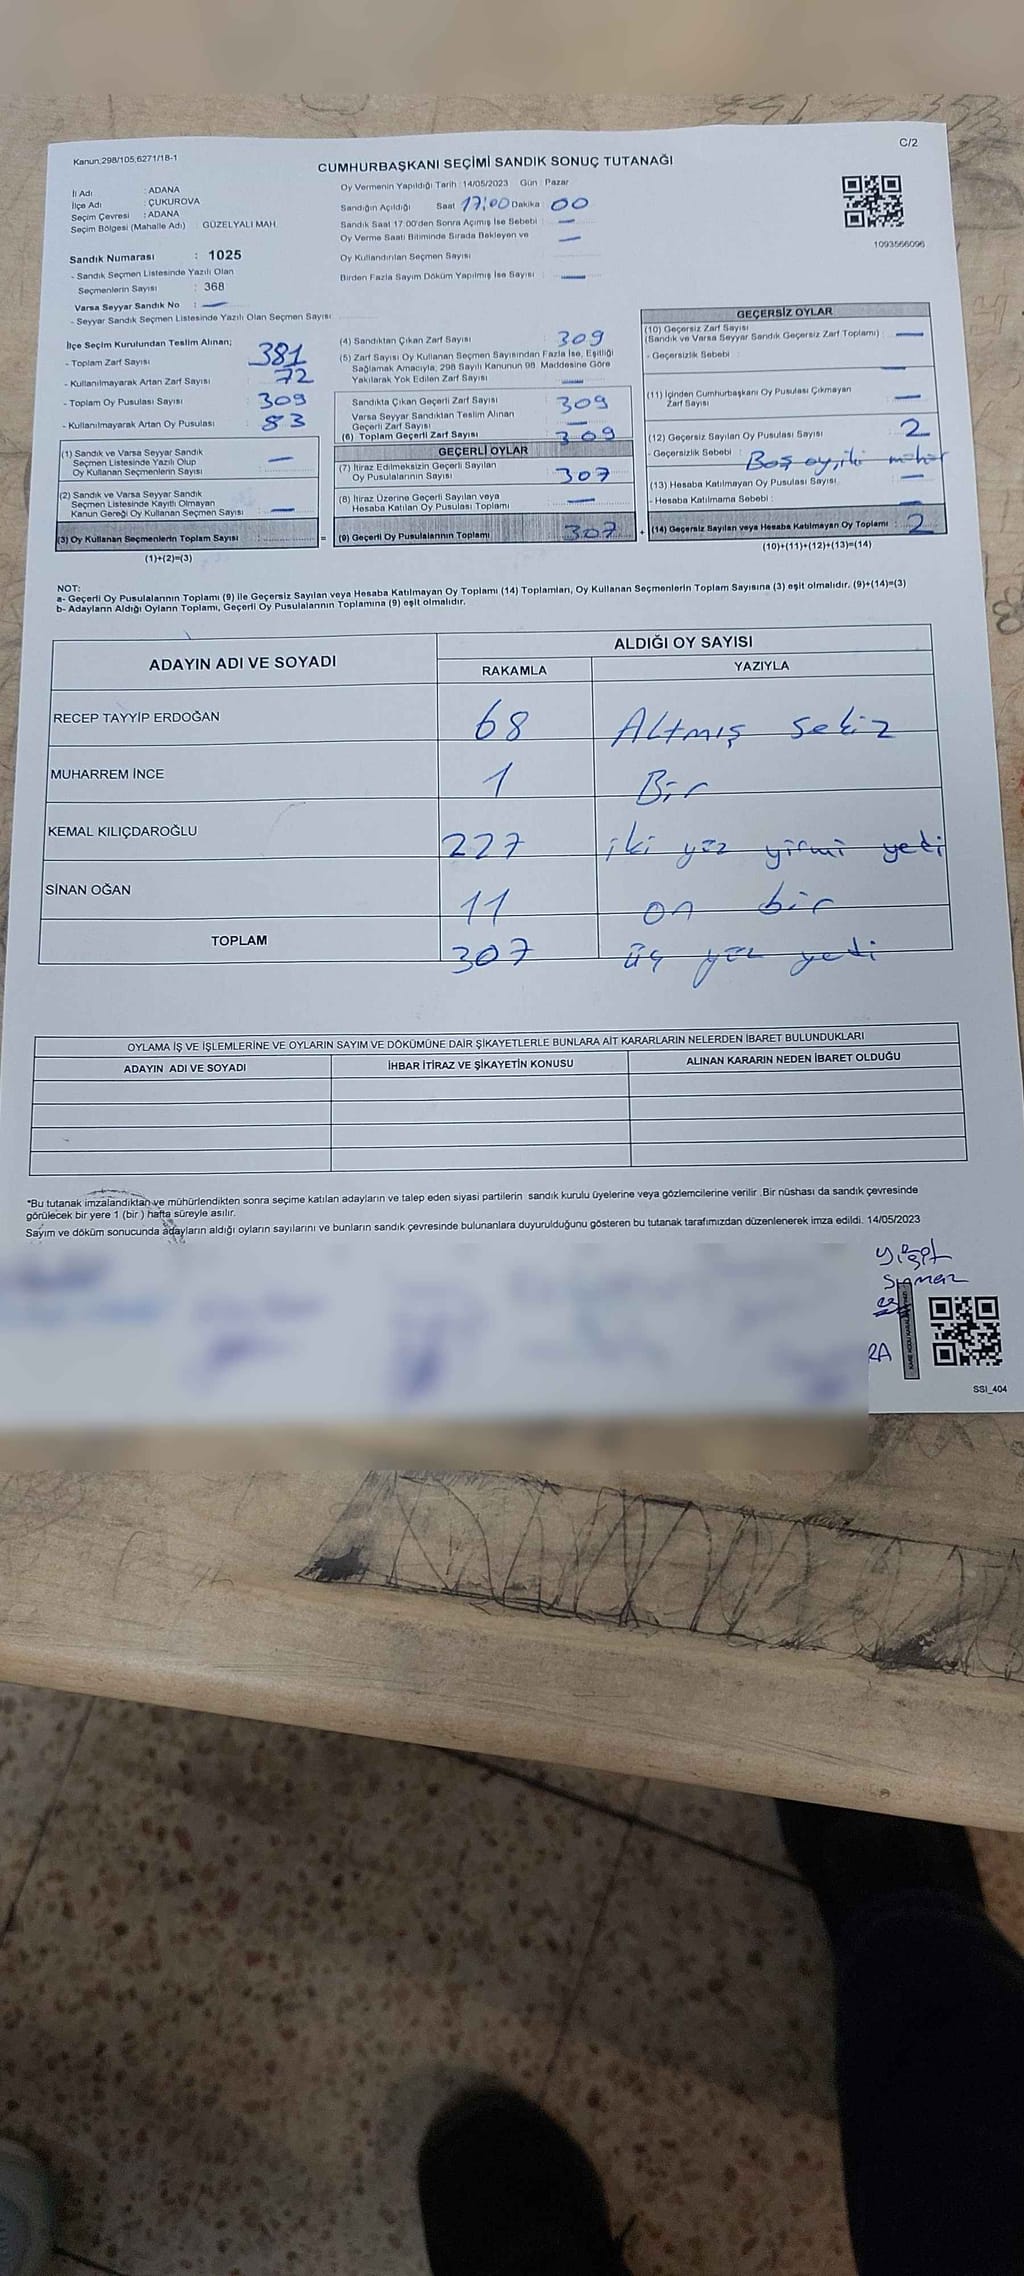 Kanun;298/105,6271/18-1
C/2
CUMHURBAŞKANI SEÇİMİ SANDIK SONUÇ TUTANAĞI
İl Adı : ADANA
İlçe Adı : ÇUKUROVA
Seçim Çevresi : ADANA
Seçim Bölgesi (Mahalle Adı) : GÜZELYALI MAH
Oy Vermenin Yapıldığı Tarih : 14/05/2023 Gün : Pazar
Sandığın Açıldığı Saat 17:00 Dakika : 00
Sandık Saat 17 00'den Sonra Açımış İse Sebebi : —
Oy Verme Saati Bitiminde Sırada Bekleyen ve
Oy Kullandırılan Seçmen Sayısı : —
Birden Fazla Sayım Döküm Yapılmış İse Sayısı : —
1093566096
Sandık Numarası : 1025
- Sandık Seçmen Listesinde Yazılı Olan
Seçmenlerin Sayısı : 368
Varsa Seyyar Sandık No : —
- Seyyar Sandık Seçmen Listesinde Yazılı Olan Seçmen Sayısı :
İlçe Seçim Kurulundan Teslim Alınan;
- Toplam Zarf Sayısı 381
- Kullanılmayarak Artan Zarf Sayısı : 72
- Toplam Oy Pusulası Sayısı : 309
- Kullanılmayarak Artan Oy Pusulası : 83
(1) Sandık ve Varsa Seyyar Sandık
Seçmen Listesinde Yazılı Olup
Oy Kullanan Seçmenlerin Sayısı : —
(2) Sandık ve Varsa Seyyar Sandık
Seçmen Listesinde Kayıtlı Olmayan
Kanun Gereği Oy Kullanan Seçmen Sayısı : —
(3) Oy Kullanan Seçmenlerin Toplam Sayısı :
(1)+(2)=(3)
(4) Sandıktan Çıkan Zarf Sayısı : 309
(5) Zarf Sayısı Oy Kullanan Seçmen Sayısından Fazla İse, Eşitliği
Sağlamak Amacıyla, 298 Sayılı Kanunun 98. Maddesine Göre
Yakılarak Yok Edilen Zarf Sayısı : —
Sandıkta Çıkan Geçerli Zarf Sayısı : 309
Varsa Seyyar Sandıktan Teslim Alınan
Geçerli Zarf Sayısı : —
(6) Toplam Geçerli Zarf Sayısı : 309
GEÇERLİ OYLAR
(7) İtiraz Edilmeksizin Geçerli Sayılan
Oy Pusulalarının Sayısı : 307
(8) İtiraz Üzerine Geçerli Sayılan veya
Hesaba Katılan Oy Pusulası Toplamı : —
= (9) Geçerli Oy Pusulalarının Toplamı : 307
GEÇERSİZ OYLAR
(10) Geçersiz Zarf Sayısı
(Sandık ve Varsa Seyyar Sandık Geçersiz Zarf Toplamı) : —
- Geçersizlik Sebebi : —
(11) İçinden Cumhurbaşkanı Oy Pusulası Çıkmayan
Zarf Sayısı : —
(12) Geçersiz Sayılan Oy Pusulası Sayısı : 2
- Geçersizlik Sebebi : Boş oy, iki mühür
(13) Hesaba Katılmayan Oy Pusulası Sayısı : —
- Hesaba Katılmama Sebebi : —
+ (14) Geçersiz Sayılan veya Hesaba Katılmayan Oy Toplamı : 2
(10)+(11)+(12)+(13)=(14)
NOT:
a- Geçerli Oy Pusulalarının Toplamı (9) ile Geçersiz Sayılan veya Hesaba Katılmayan Oy Toplamı (14) Toplamları, Oy Kullanan Seçmenlerin Toplam Sayısına (3) eşit olmalıdır. (9)+(14)=(3)
b- Adayların Aldığı Oyların Toplamı, Geçerli Oy Pusulalarının Toplamına (9) eşit olmalıdır.
ADAYIN ADI VE SOYADI
ALDIĞI OY SAYISI
RAKAMLA YAZIYLA
RECEP TAYYİP ERDOĞAN 68 Altmış sekiz
MUHARREM İNCE 1 Bir
KEMAL KILIÇDAROĞLU 227 iki yüz yirmi yedi
SİNAN OĞAN 11 on bir
TOPLAM 307 üç yüz yedi
OYLAMA İŞ VE İŞLEMLERİNE VE OYLARIN SAYIM VE DÖKÜMÜNE DAİR ŞİKAYETLERLE BUNLARA AİT KARARLARIN NELERDEN İBARET BULUNDUKLARI
ADAYIN ADI VE SOYADI İHBAR İTİRAZ VE ŞİKAYETİN KONUSU ALINAN KARARIN NEDEN İBARET OLDUĞU
*Bu tutanak imzalandıktan ve mühürlendikten sonra seçime katılan adayların ve talep eden siyasi partilerin sandık kurulu üyelerine veya gözlemcilerine verilir .Bir nüshası da sandık çevresinde
görülecek bir yere 1 (bir ) hafta süreyle asılır.
Sayım ve döküm sonucunda adayların aldığı oyların sayılarını ve bunların sandık çevresinde bulunanlara duyurulduğunu gösteren bu tutanak tarafımızdan düzenlenerek imza edildi. 14/05/2023
Yiğit
RA
SSI_404